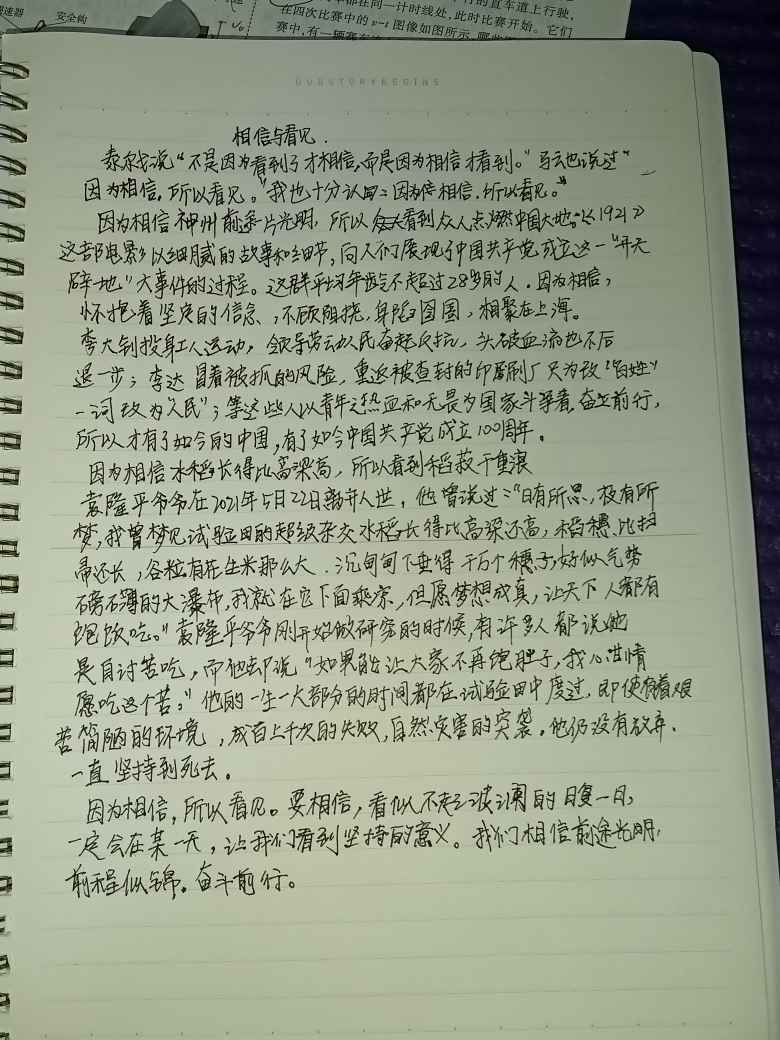 速器 安全钩
在四次比赛中的v-t图像如图所示
的直车道上行驶,
都在同一计时线处,此时比赛开始。它们
OURSTORYBEGINS
相信与看见.
泰尔戈说“不是因为看到了才相信,而是因为相信才看到。”马云也说过“
因为相信,所以看见。”我也十分认同:因为相信,所以看见。”
因为相信神州前途一片光明,所以看到众人点燃中国大地。《1921》
这部电影以细腻的故事和细节,向人们展现了中国共产党成立这一“开天
辟地”大事件的过程。这群平均年龄不超过28岁的人.因为相信,
怀抱着坚定的信念,不顾阻挠,身陷囹圄,相聚在上海。
李大钊投身工人运动,领导劳动人民奋起反抗,头破血流也不后
退一步;李达冒着被抓的风险,重返被查封的印刷厂只为改“百姓”
一词改为“人民”;等这些人以青年之热血和无畏为国家斗争着,奋立前行,
所以才有了如今的中国,有了如今中国共产党成立100周年。
因为相信水稻长得比高粱高,所以看到稻菽千重浪
袁隆平爷爷在2021年5月22日离开人世,他曾说过:“日有所思,夜有所
梦,我曾梦见试验田的超级杂交水稻长得比高粱还高,稻穗比扫
帚还长,谷粒有花生米那么大.沉甸甸下垂得千万个穗子,好似气势
磅礴的大瀑布,我就在它下面乘凉,但愿梦想成真,让天下人都有
饱饭吃。”袁隆平爷爷刚开始做研究的时候,有许多人都说他
是自讨苦吃,而他却说“如果能让大家不再饿肚子,我心甘情
愿吃这个苦。”他的一生一大部分的时间都在试验田中度过,即使有着艰
苦简陋的环境,成百上千次的失败,自然灾害的突袭。他仍没有放弃.
一直坚持到死去。
因为相信,所以看见。要相信,看似不起波澜的日复一日,
一定会在某一天,让我们看到坚持的意义。我们相信前途光明,
前程似锦。奋斗前行。